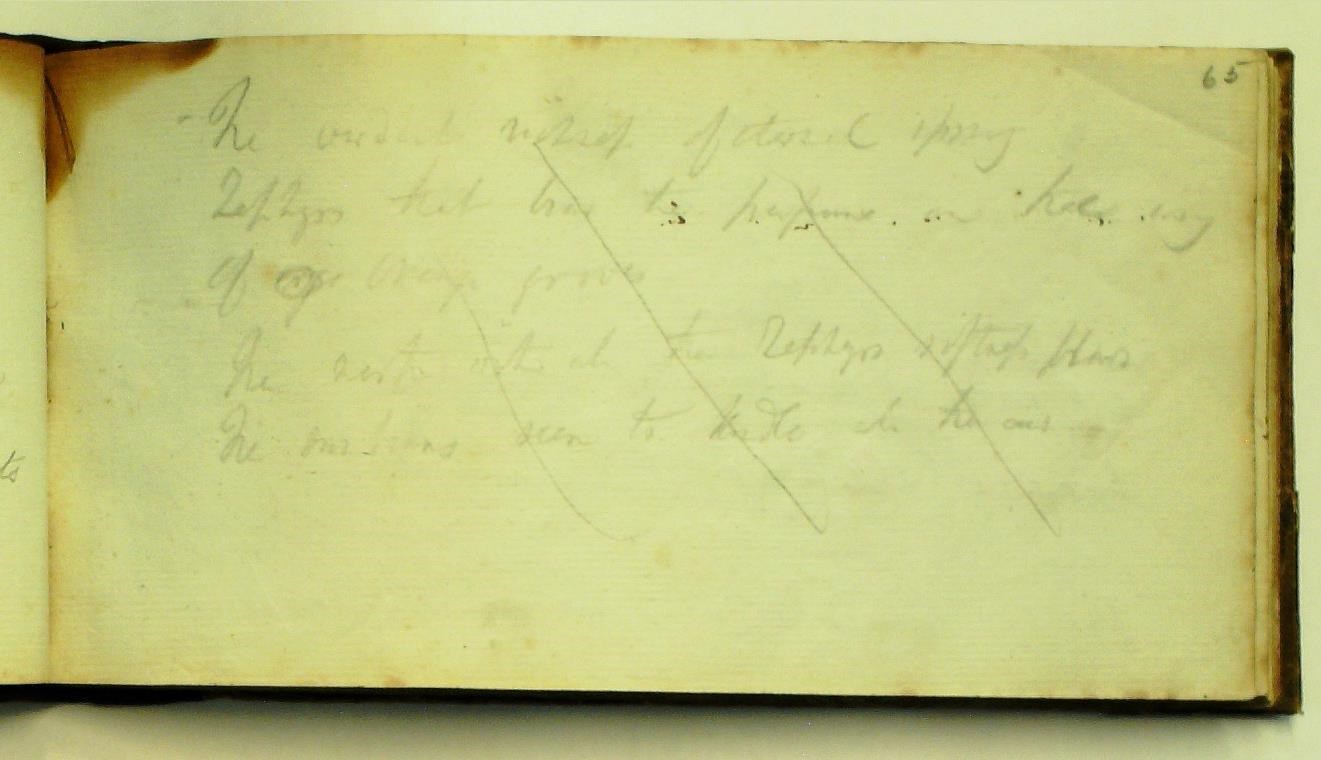 65
The verdant of eternal spring
Zephyrs that bear the perfume on their wing
Of orange groves
The in the Zephyrs softest
The sun beams seem to kindle in the air
ts